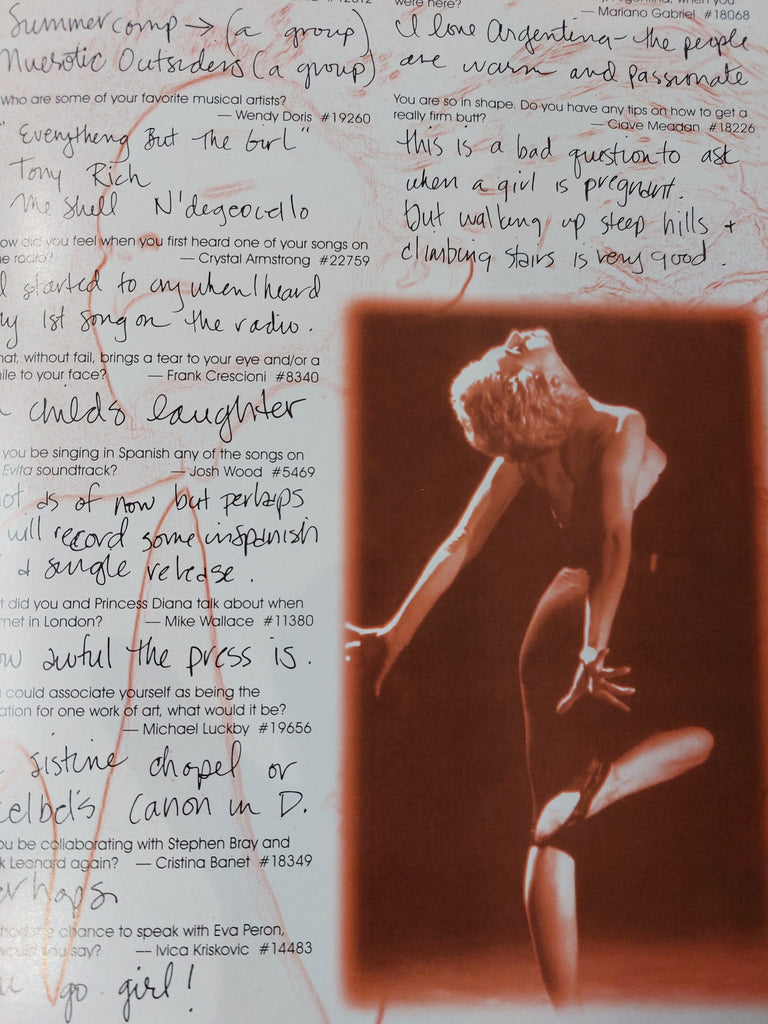 Summercamp → (a group)
Nuerotic Outsiders (a group)
who are some of your favorite musical artists?
— Wendy Doris #19260
"Everything But The Girl"
Tony Rich
Me Shell N'degeocello
ow did you feel when you first heard one of your songs on
e radio? — Crystal Armstrong #22759
I started to cry when I heard
my 1st song on the radio.
hat, without fail, brings a tear to your eye and/or a
ile to your face? — Frank Crescioni #8340
a childs laughter
you be singing in Spanish any of the songs on
Evita soundtrack? — Josh Wood #5469
not as of now but perhaps
will record some in Spanish
a single release.
t did you and Princess Diana talk about when
met in London? — Mike Wallace #11380
ow awful the press is.
could associate yourself as being the
ation for one work of art, what would it be?
— Michael Luckby #19656
sistine chapel or
elbel's Canon in D.
ou be collaborating with Stephen Bray and
k Leonard again? — Cristina Banet #18349
erhaps
chance to speak with Eva Peron,
would you say? — Ivica Kriskovic #14483
go girl!
were here?
— Mariano Gabriel #18068
I love Argentina - the people
are warm and passionate
You are so in shape. Do you have any tips on how to get a
really firm butt? — Clave Meadan #18226
this is a bad question to ask
when a girl is pregnant.
but walking up steep hills +
climbing stairs is very good.